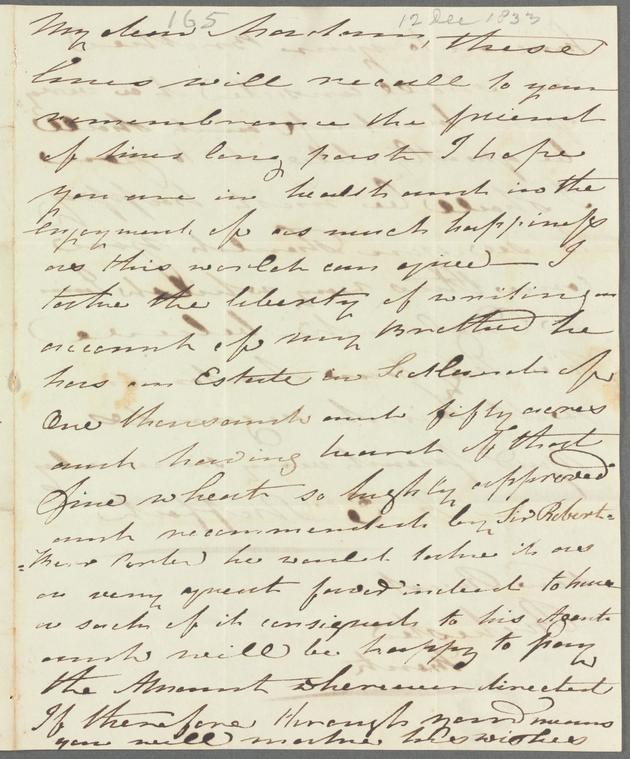 165 12 Dec 1833
My dear Madam, these
lines will recall to your
remembrance the friend
of times long past I hope
you are in health and in the
Enjoyment of as much happiness
as this world can give — I
take the liberty of writing on
account of my Brother he
has an Estate in Scotland of
One thousand and fifty acres
and having heard of that
fine wheat so highly approved
and recommended by Sir Robert =
= Ker Porter he would take it as
a very great favor indeed to have
a sack of it consigned to his Agent
and will be happy to pay
the Amount wherever directed
If therefore through your means
you will make his wishes